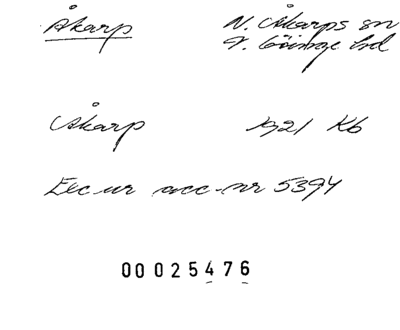 Åkarp N. Åkarps sn
V. Göinge hd
Åkarp 1921 Kb
Exc. ur acc.-nr 5394
00025476